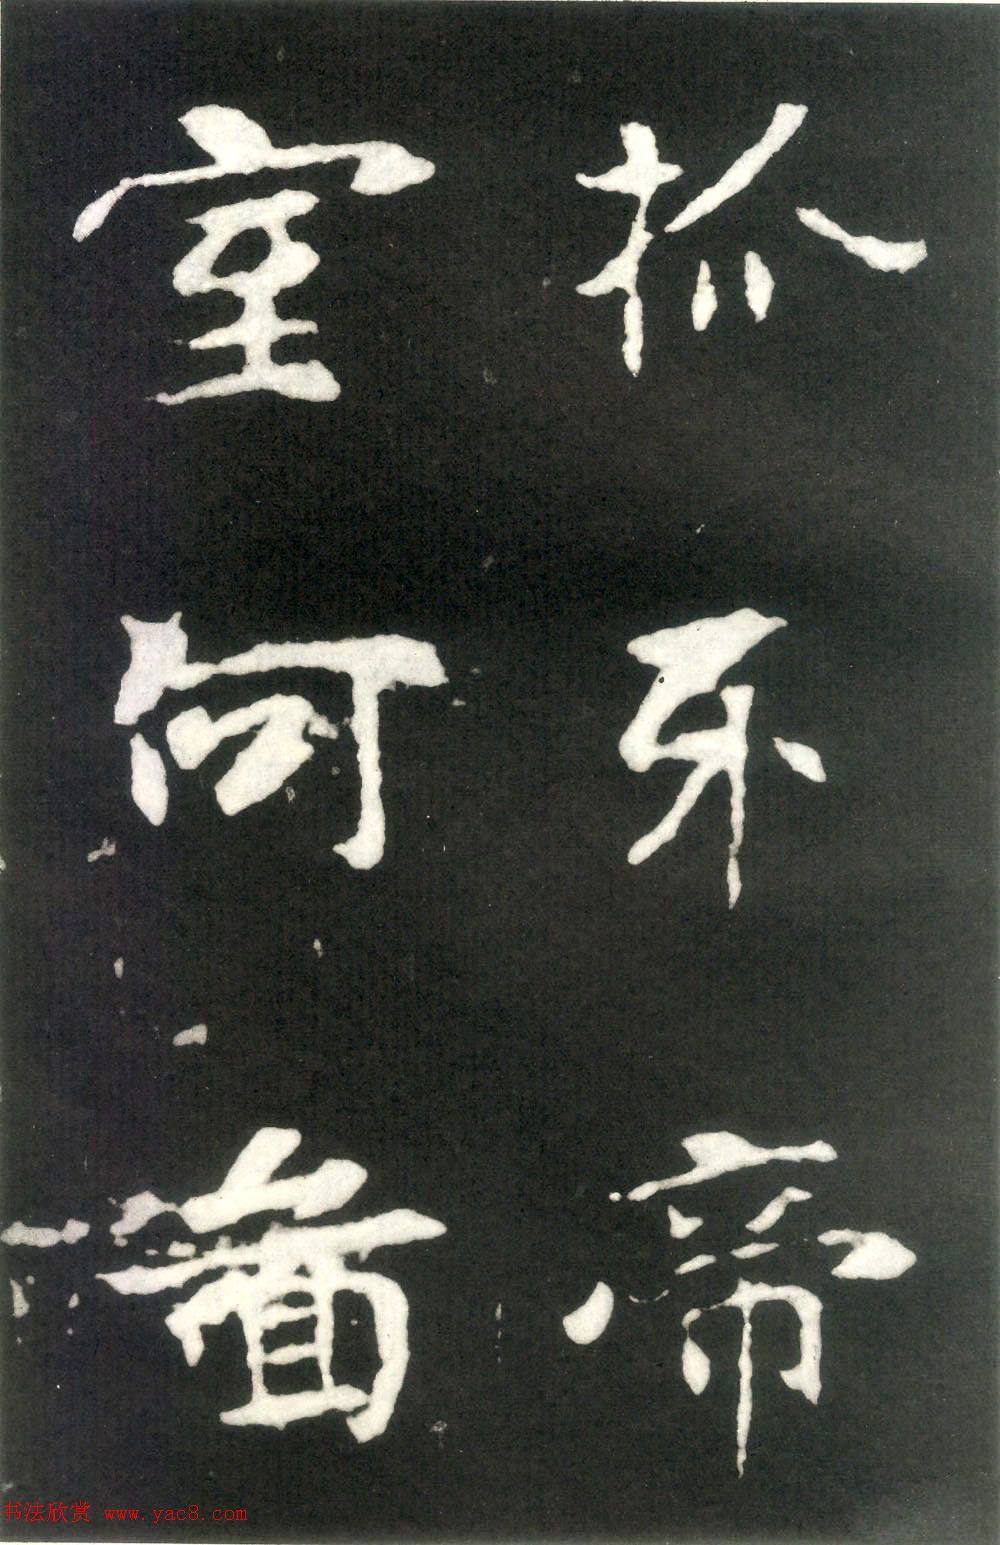 於不帝
室何
书法欣赏 www.yac8.com